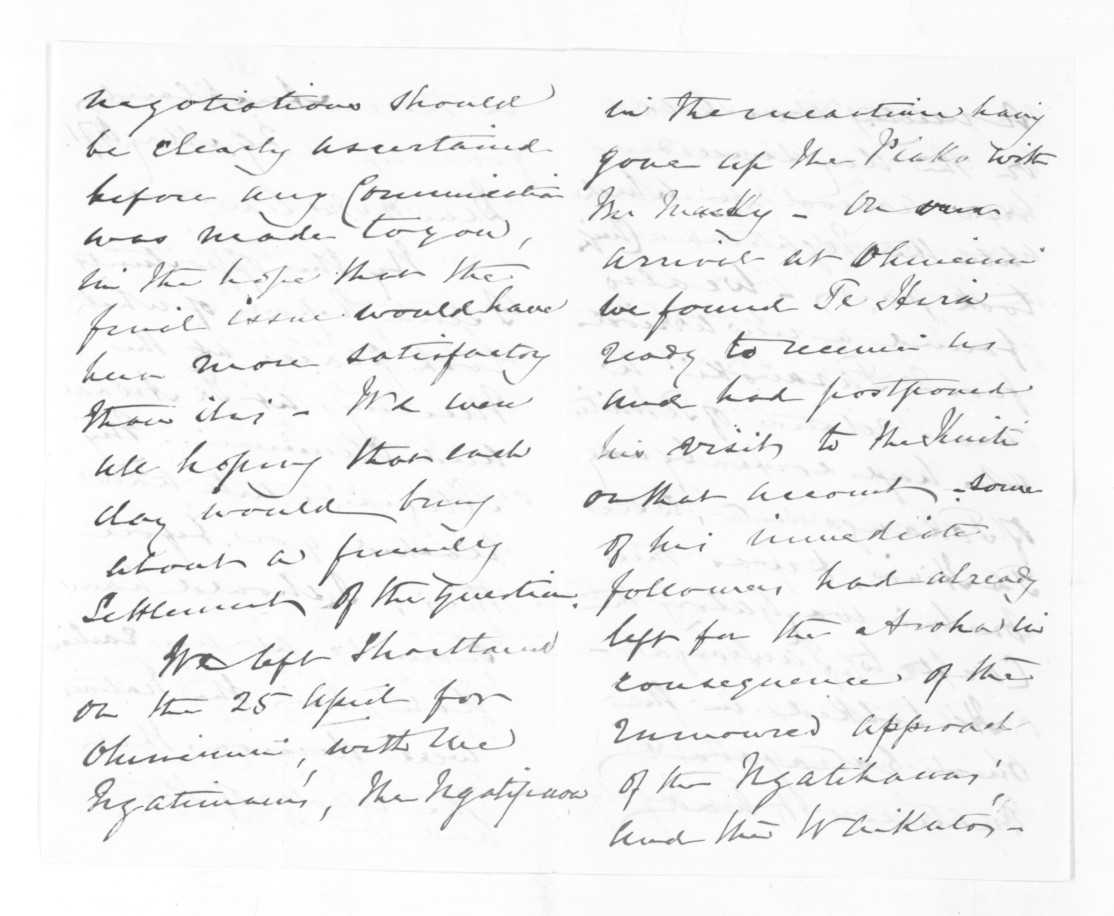 negotiations should
be clearly ascertained
before any Communication
was made to you,
in the hope that the
final issue would have
been more satisfactory
than it is - We were
all hoping that each
day would bring
about a friendly
Settlement of the Question.
We left Shortland
on the 25 April for
Ohinemuri, with the
Ngatimaru's, the Ngatipaoa
in the meantime having
gone up the Piako with
Mr Mackay - On our
arrival at Ohinemuri
we found Te Hira
ready to receive us
and had postponed
his visit to the Kuiti
on that account - Some
of his immediate
followers had already
left for the Aroha in
consequence of the
rumoured approach
of the Ngatihauas',
and the Waikatos -